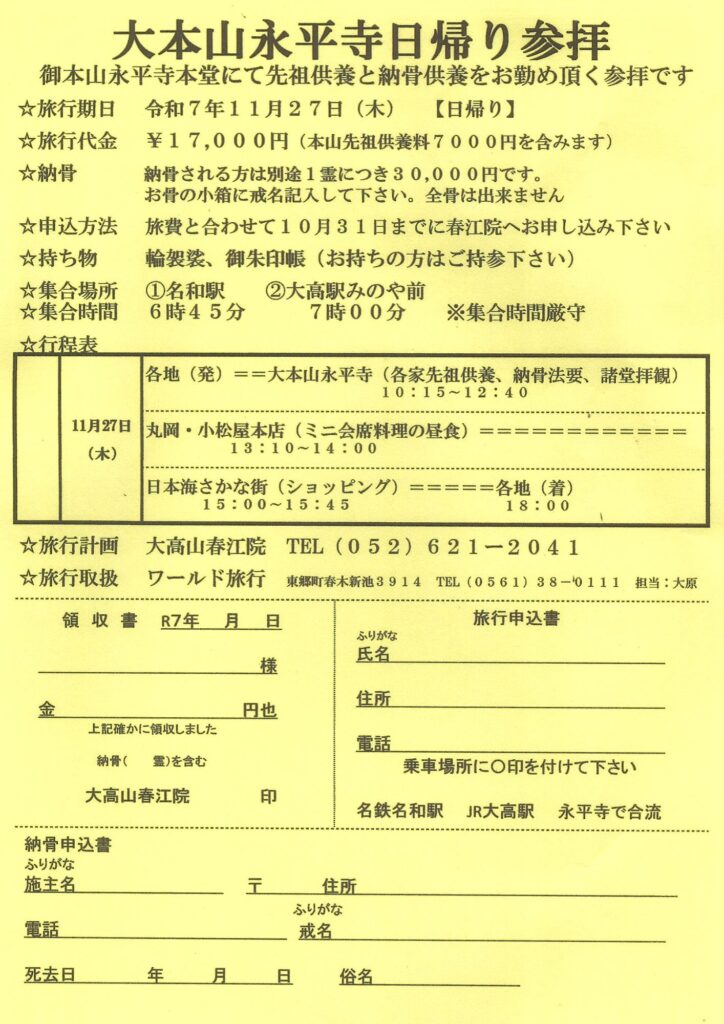 大本山永平寺日帰り参拝
御本山永平寺本堂にて先祖供養と納骨供養をお勤め頂く参拝です
☆旅行期日　令和７年１１月２７日（木）　【日帰り】
☆旅行代金　￥１７,０００円（本山先祖供養料７０００円を含みます）
☆納骨　納骨される方は別途１霊につき３０,０００円です。
お骨の小箱に戒名記入して下さい。全骨は出来ません
☆申込方法　旅費と合わせて１０月３１日までに春江院へお申し込み下さい
☆持ち物　輪袈裟、御朱印帳（お持ちの方はご持参下さい）
☆集合場所　①名和駅　②大高駅みのや前
☆集合時間　６時４５分　７時００分　※集合時間厳守
☆行程表
11月27日
（木）
各地（発）＝＝大本山永平寺（各家先祖供養、納骨法要、諸堂拝観）
１０：１５～１２：４０
丸岡・小松屋本店（ミニ会席料理の昼食）＝＝＝＝＝＝＝＝＝＝＝＝
１３：１０～１４：００
日本海さかな街（ショッピング）＝＝＝＝＝各地（着）
１５：００～１５：４５　１８：００
☆旅行計画　大高山春江院　TEL（０５２）６２１－２０４１
☆旅行取扱　ワールド旅行　東郷町春木新池３９１４　TEL（０５６１）３８－０１１１　担当：大原
領 収 書　R7年　月　日
様
金　円也
上記確かに領収しました
納骨（　霊）を含む
大高山春江院　印
旅行申込書
ふりがな
氏名
住所
電話
乗車場所に〇印を付けて下さい
名鉄名和駅　JR大高駅　永平寺で合流
納骨申込書
ふりがな
施主名　〒　住所
ふりがな
電話　戒名
死去日　年　月　日　俗名